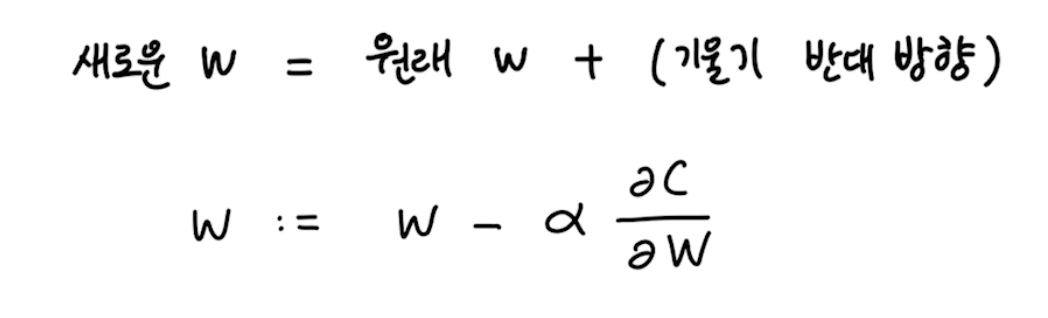 새로운 W = 원래 W + (기울기 반대 방향)
W := W - α ∂C/∂W